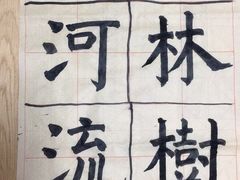 林樹
河流